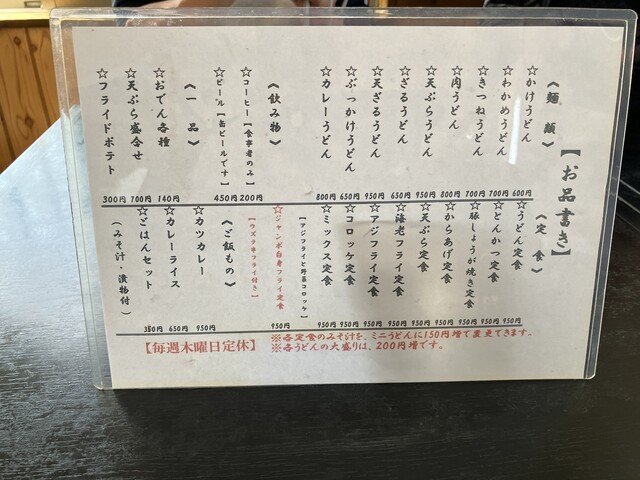 【お品書き】
《麺類》
☆かけうどん 600円
☆わかめうどん 700円
☆きつねうどん 700円
☆肉うどん 800円
☆天ぷらうどん 950円
☆ざるうどん 650円
☆天ざるうどん 950円
☆ぶっかけうどん 650円
☆カレーうどん 800円
《飲み物》
☆コーヒー【食事者のみ】 200円
☆ビール【缶ビールです】 450円
《一品》
☆おでん各種 140円
☆天ぷら盛合せ 700円
☆フライドポテト 300円
《定食》
☆うどん定食 950円
☆とんかつ定食 950円
☆豚しょうが焼き定食 950円
☆からあげ定食 950円
☆天ぷら定食 950円
☆海老フライ定食 950円
☆アジフライ定食 950円
☆コロッケ定食 950円
☆ミックス定食 950円
【アジフライと野菜コロッケ】
☆ジャンボ白身フライ定食 950円
フライ付き】
《ご飯もの》
☆カツカレー 950円
☆カレーライス 650円
☆ごはんセット
（みそ汁・漬物付）
※各定食のみそ汁を、ミニうどんに150円増で変更できます。
※各うどんの大盛りは、200円増です。
【毎週木曜日定休】